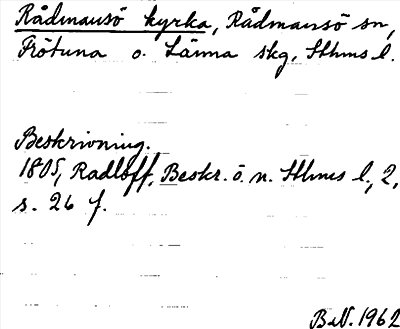 Rådmansö kyrka, Rådmansö sn,
Frötuna o. Länna skg, Sthms l.
Beskrivning.
1805, Radloff, Beskr. ö. n. Sthms l., 2,
s. 26 f.
B.W. 1962